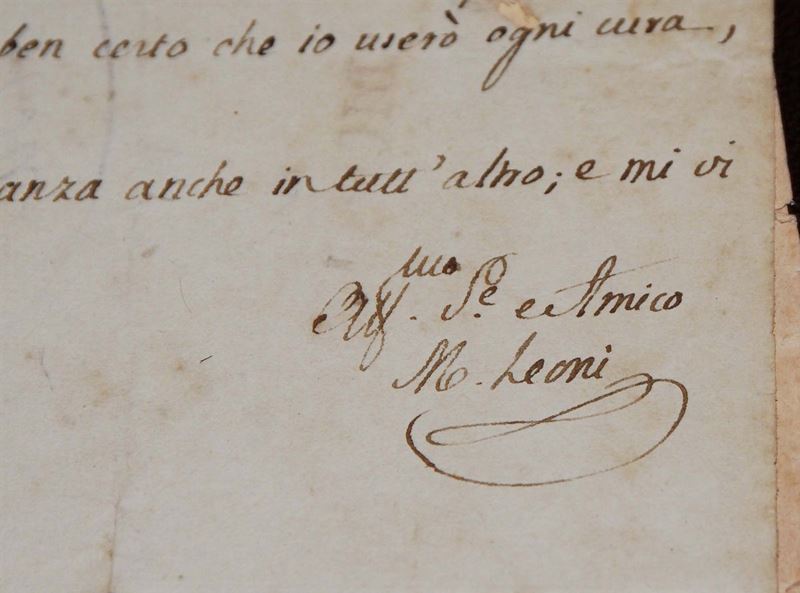 ben certo che io userò ogni cura,
anza anche in tutt'altro; e mi vi
Aff.mo Se. e Amico
M. Leoni